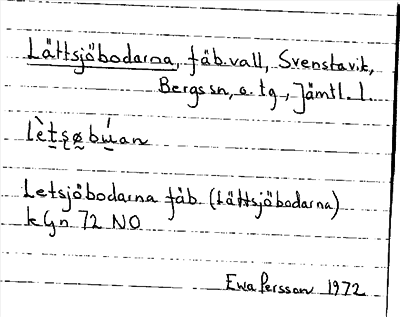 Lättsjöbodarna, fäb.vall, Svenstavik,
Bergs sn, a. tg., Jämtl. l.
Letsjöbodarna fäb. (Lättsjöbodarna)
kGn 72 NO
Ewa Persson 1972